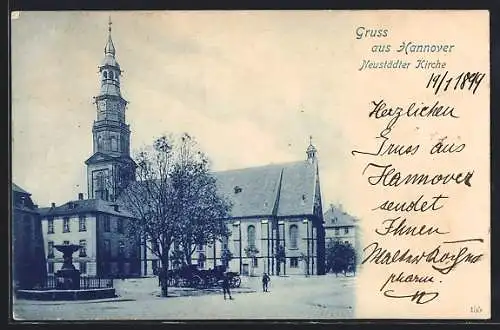 Gruss
aus Hannover
Neustädter Kirche
19/7 1899
Herzlichen
Gruss aus
Hannover
sendet
Ihnen
Walter
pharm.